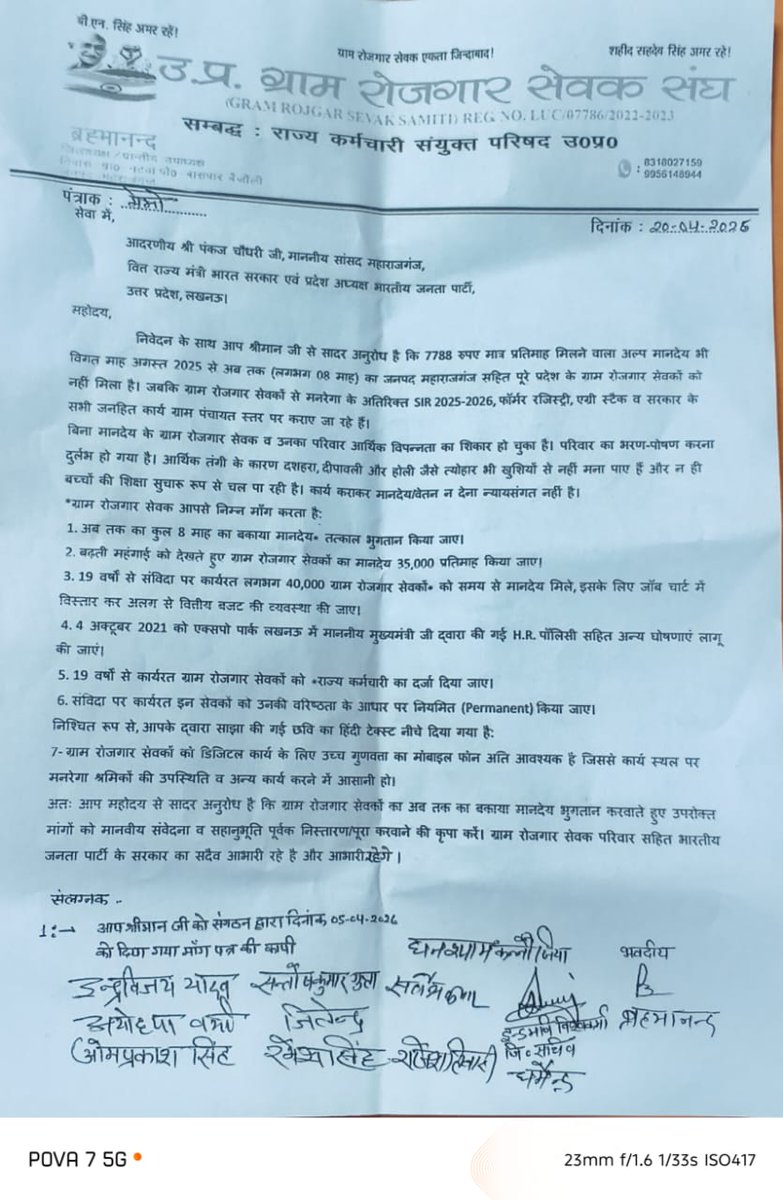 बी.एन. सिंह अमर रहें!
ग्राम रोजगार सेवक एकता जिन्दाबाद!
शहीद सहदेव सिंह अमर रहे!
उ.प्र. ग्राम रोजगार सेवक संघ
(GRAM ROJGAR SEVAK SAMITI) REG. NO. LUC/07786/2022-2023
सम्बद्ध : राज्य कर्मचारी संयुक्त परिषद उ०प्र०
ब्रह्मानन्द
8318027159
9956148944
पंत्राक :
सेवा में,
दिनांक : 20-04-2026
आदरणीय श्री पंकज चौधरी जी, माननीय सांसद महाराजगंज,
वित्त राज्य मंत्री भारत सरकार एवं प्रदेश अध्यक्ष भारतीय जनता पार्टी,
उत्तर प्रदेश, लखनऊ।
महोदय,
निवेदन के साथ आप श्रीमान जी से सादर अनुरोध है कि 7788 रुपए मात्र प्रतिमाह मिलने वाला अल्प मानदेय भी
विगत माह अगस्त 2025 से अब तक (लगभग 08 माह) का जनपद महाराजगंज सहित पूरे प्रदेश के ग्राम रोजगार सेवकों को
नहीं मिला है। जबकि ग्राम रोजगार सेवकों से मनरेगा के अतिरिक्त SIR 2025-2026, फॉर्मर रजिस्ट्री, एग्री स्टैक व सरकार के
सभी जनहित कार्य ग्राम पंचायत स्तर पर कराए जा रहे हैं।
बिना मानदेय के ग्राम रोजगार सेवक व उनका परिवार आर्थिक विपन्नता का शिकार हो चुका है। परिवार का भरण-पोषण करना
दुर्लभ हो गया है। आर्थिक तंगी के कारण दशहरा, दीपावली और होली जैसे त्योहार भी खुशियों से नहीं मना पाए हैं और न ही
बच्चों की शिक्षा सुचारू रूप से चल पा रही है। कार्य कराकर मानदेय/वेतन न देना न्यायसंगत नहीं है।
*ग्राम रोजगार सेवक आपसे निम्न माँग करता है:
1. अब तक का कुल 8 माह का बकाया मानदेय* तत्काल भुगतान किया जाए।
2. बढ़ती महंगाई को देखते हुए ग्राम रोजगार सेवकों का मानदेय 35,000 प्रतिमाह किया जाए।
3. 19 वर्षों से संविदा पर कार्यरत लगभग 40,000 ग्राम रोजगार सेवकों* को समय से मानदेय मिले, इसके लिए जॉब चार्ट में
विस्तार कर अलग से वित्तीय बजट की व्यवस्था की जाए।
4. 4 अक्टूबर 2021 को एक्सपो पार्क लखनऊ में माननीय मुख्यमंत्री जी द्वारा की गई H.R. पॉलिसी सहित अन्य घोषणाएं लागू
की जाएं।
5. 19 वर्षों से कार्यरत ग्राम रोजगार सेवकों को *राज्य कर्मचारी का दर्जा दिया जाए।
6. संविदा पर कार्यरत इन सेवकों को उनकी वरिष्ठता के आधार पर नियमित (Permanent) किया जाए।
निश्चित रूप से, आपके द्वारा साझा की गई छवि का हिंदी टेक्स्ट नीचे दिया गया है:
7- ग्राम रोजगार सेवकों को डिजिटल कार्य के लिए उच्च गुणवता का मोबाइल फोन अति आवश्यक है जिससे कार्य स्थल पर
मनरेगा श्रमिकों की उपस्थिति व अन्य कार्य करने में आसानी हो।
अतः आप महोदय से सादर अनुरोध है कि ग्राम रोजगार सेवकों का अब तक का बकाया मानदेय भुगतान करवाते हुए उपरोक्त
मांगों को मानवीय संवेदना व सहानुभूति पूर्वक निस्तारण/पूरा करवाने की कृपा करें। ग्राम रोजगार सेवक परिवार सहित भारतीय
जनता पार्टी के सरकार का सदैव आभारी रहे है और आभारी रहेगे ।
संलग्नक -
1:→ आप श्रीमान जी को संगठन द्वारा दिनांक 05-04-2026
को दिया गया माँग पत्र की कापी
घनश्याम कन्नौजिया
भवदीय
इन्द्रविजय यादव सन्तोष कुमार गुप्ता
अयोध्या वर्मा जितेन्द्र
ब्रह्मानन्द
ओमप्रकाश सिंह
जि० सचिव
धर्मेन्द्र
POVA 7 5G
23mm f/1.6 1/33s ISO417